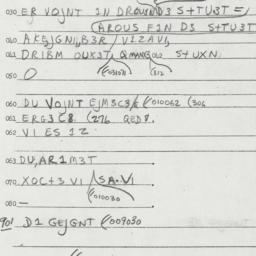 030 ER VOJNT IN DROUMD3 S+TU3T =/
(AROUS FIN D3 S+TU3T
040 AKEJGNI,B3R / VIZAVI,
041 DRIBM OUX3T, S+UXN
050 O
060 DU VOJNT EJM3C8/E (010062 (306
061 ERG3C8 (276 QED8.
062 VI ES 12
063 DU,AR1M3T
070 XOC+3 VI /SA.VI
(010030
080 —
901 D1 GEJGNT (009030